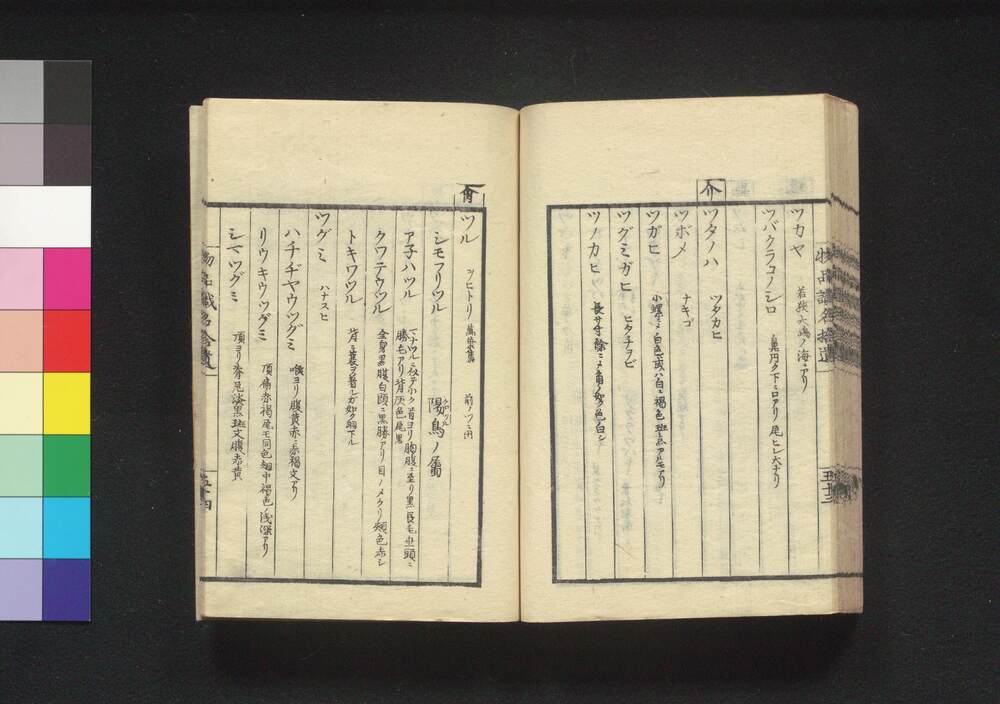 ツカヤ 若狭大嶋ノ海ニアリ
ツバクラコノシロ 鼻円ク下ニ口アリ尾ヒレ大ナリ
介
ツタノハ ツタカヒ
ツボメ ナキゴ
ツガヒ 小螺ニメ白色或ハ白ニ褐色斑点アルモアリ
ツグミガヒ ヒタチヲビ
ツノカヒ 長サ寸餘ニメ角ノ如ク色白シ
物品識名拾遺 五十三
ツル ツヒトリ 萬葉集
シモフリツル 陽鳥ノ属
ア子ハツル マナツルニ似テ小ク首ヨリ胸腹ニ至リ黒長毛
勝毛アリ背灰色尾黒
クワテウツル 全身黒腹白頭ニ黒勝アリ目ノメクリ頬色赤シ
トキワツル 背ニ蓑ヲ着シガ如ク翅下ル
ツグミ ハナスヒ
ハチヂヤウツグミ 喉ヨリ腹黄赤ニ赤褐文アリ
リウキウツグミ 頂備赤褐尾モ同色翅中褐色ノ浅深アリ
シマツグミ 頂ヨリ脊尾淡黒斑文腹赤黄
物品識名拾遺 五十四